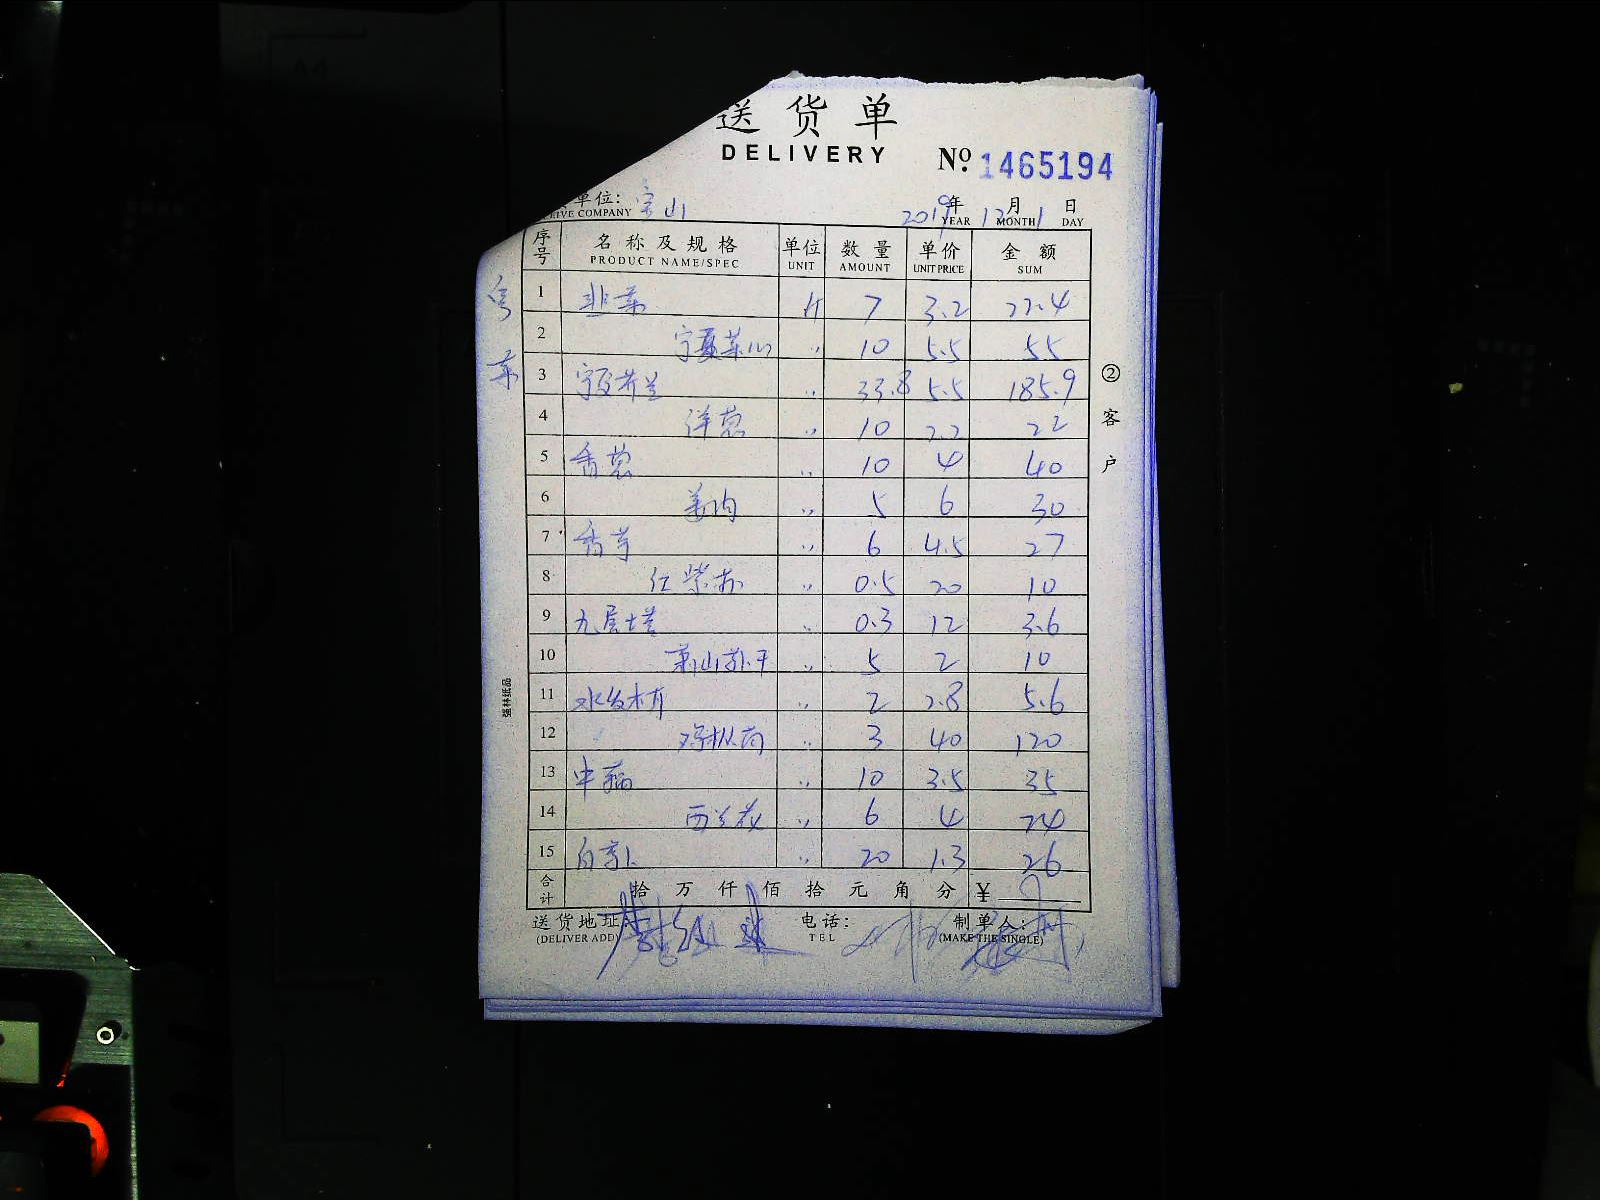 送货单
DELIVERY
No. 1465194
单位: 宝山
COMPANY
2019年 12月 1日
YEAR MONTH DAY
序号 名称及规格 单位 数量 单价 金额
PRODUCT NAME/SPEC UNIT AMOUNT UNIT PRICE SUM
1 韭菜 斤 7 3.2 22.4
2 宁夏菜心 〃 10 5.5 55
3 宁夏芥兰 〃 33.8 5.5 185.9
4 洋葱 〃 10 2.2 22
5 香葱 〃 10 4 40
6 姜肉 〃 5 6 30
7 香芋 〃 6 4.5 27
8 红紫苏 〃 0.5 20 10
9 九层塔 〃 0.3 12 3.6
10 萧山萝卜干 〃 5 2 10
11 水发木耳 〃 2 2.8 5.6
12 鸡枞菌 〃 3 40 120
13 中菇 〃 10 3.5 35
14 西兰花 〃 6 4 24
15 白萝卜 〃 20 1.3 26
合计 拾万仟佰拾元角分 ¥
送货地址: 电话: 制单人:
(DELIVER ADD) TEL (MAKE THE SINGLE)
②客户
强林纸品